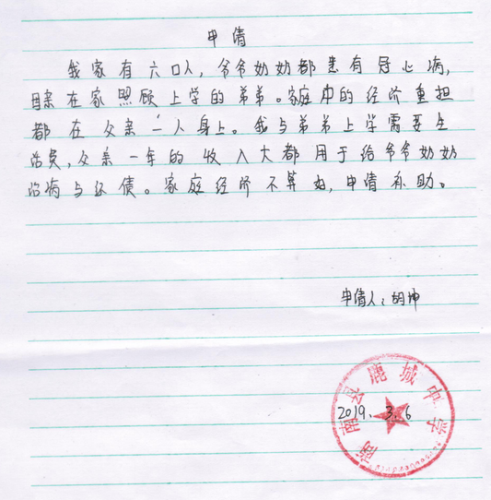 申请
我家有六口人，爷爷奶奶都患有冠心病，
母亲在家照顾上学的弟弟。家庭中的经济重担
都在父亲一人身上。我与弟弟上学需要生
活费，父亲一年的收入大都用于给爷爷奶奶
治病与还债。家庭经济不算如，申请补助。
申请人：胡坤
商南县鹿城中学
2019.3.6